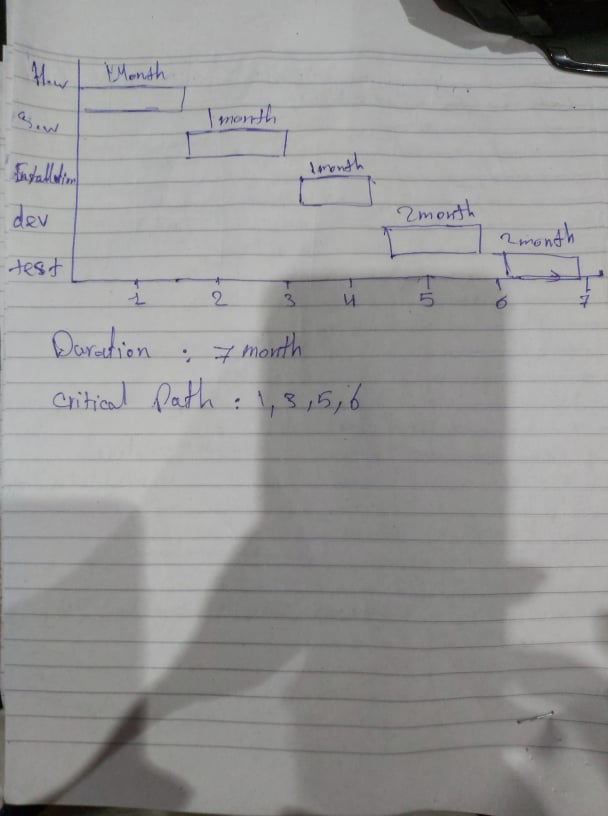 H.w 1 Month
S.w 1 month
Installation 1 month
dev 2 month
test 2 month
1 2 3 4 5 6 7
Duration : 7 month
Critical Path : 1, 3, 5, 6